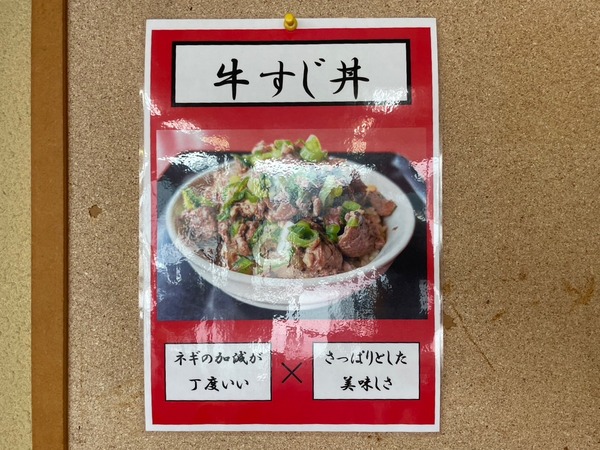 牛すじ丼
ネギの加減が
丁度いい
×
さっぱりとした
美味しさ